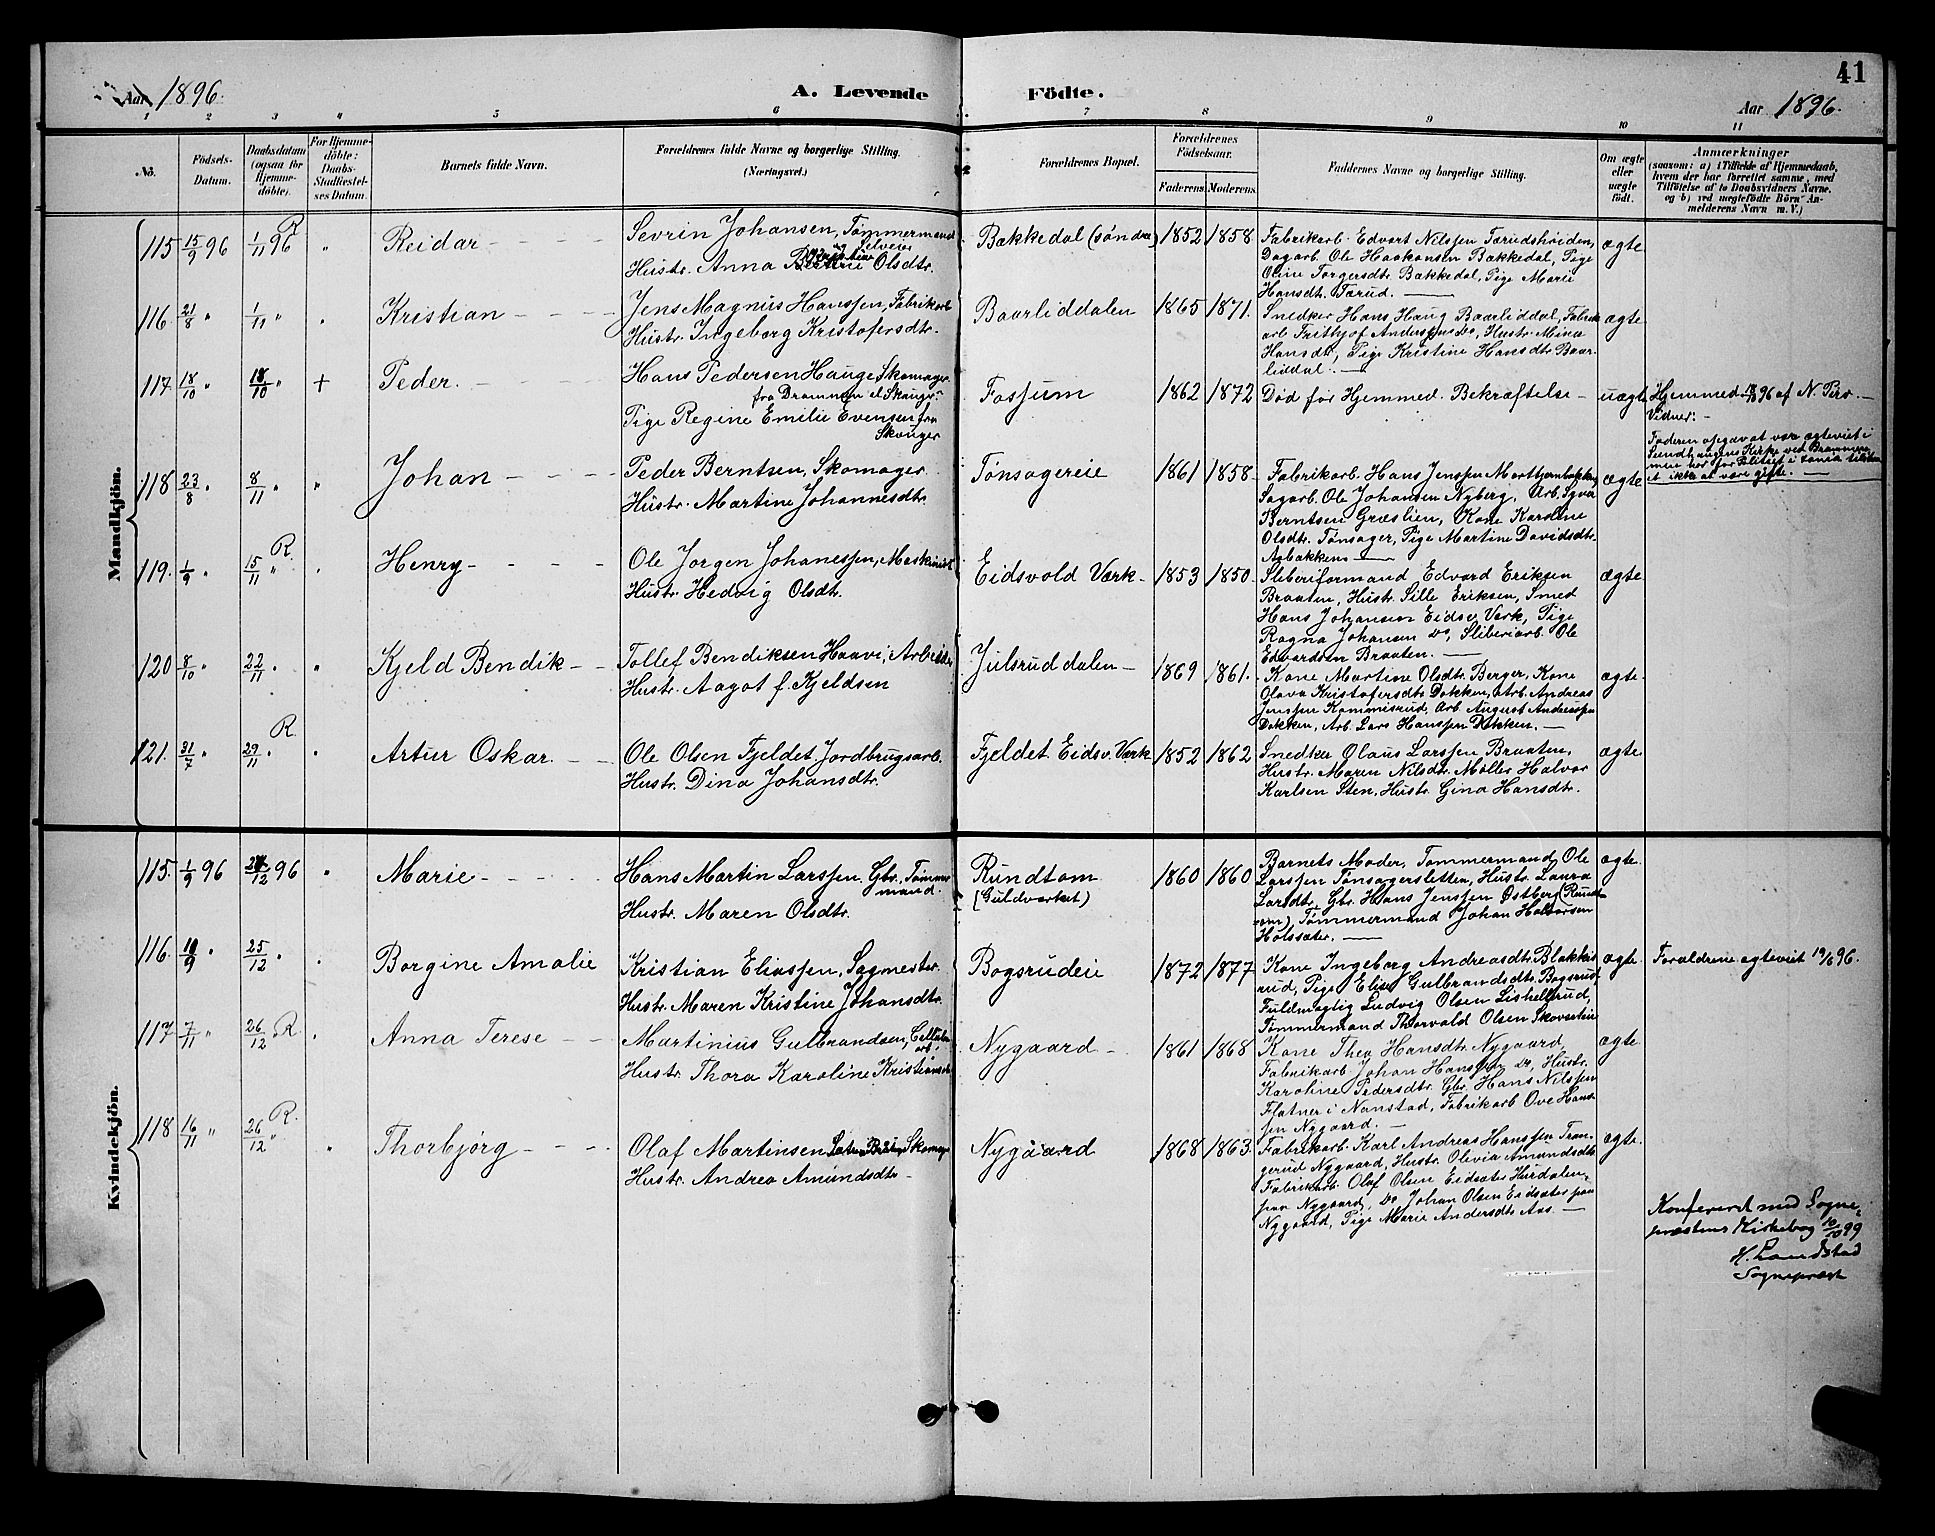 41
Aar 1896.
A. Levende Födte.
Aar 1896.
1 2 3 4 5 6 7 8 9 10 11
No.
Födsels-
Datum.
Daabsdatum
(ogsaa for
Hjemme-
döbte).
For Hjemme-
döbte:
Daabs-
Stadfæstel-
ses Datum.
Barnets fulde Navn.
Forældrenes fulde Navne og borgerlige Stilling.
(Næringsvei.)
Forældrenes Bopæl.
Forældrenes
Födselsaar.
Faderens. Moderens.
Faddernes Navne og borgerlige Stilling.
Om ægte
eller
uægte
født.
Anmærkninger
(saasom: a) i Tilfælde af Hjemmedaab,
hvem der har forrettet samme, med
Tilföielse af to Daabsvidners Navne,
og b) ved uægtefödte Börn An-
melderens Navn m. V.)
Mandkjön.
115 15/9 96 1/11 96 R " Reidar
Sevrin Johansen, Tømmermand
og Selveier
Hustr. Anna Olsdtr.
Bakkedal (søndre) 1852 1858
Fabrikarb. Edvart Nilssen Tærudshviden,
Dagarb. Ole Haakonsen Bakkedal, Pige
Oline Torgersdtr. Bakkedal, Pige Marie
Hansdt. Tærud.
ægte
116. 21/8 " 1/11 " " Kristian
Jens Magnus Hanssen, Fabrikarb
Hustr. Ingeborg Kristofersdtr.
Baarliddalen 1865 1871.
Snedker Hans Haug Baarliddal, Fabrik-
arb Frithjof Anderssen Do, Hustr. Mina
Hansdt, Pige Kristine Hansdtr. Baar-
liddal.
ægte
117 18/10 " 18/10 " + Peder.
Hans Pedersen Hauge Skomager
fra Drammen el Skauger
Pige Regine Emilie Evensen fra
Skauger
Fossum 1862 1872
Død før Hjemmed. Bekræftelse
uægte
Hjemmed 18/10 96 af N. Pers.
Vidner:
Faderen opgav at være ægteviet i
et ikke at være gifte.
118 23/8 " 8/11 " " Johan
Peder Berntsen, Skomager
Hustr. Martine Johannesdtr.
Tønsagereie 1861 1858
Fabrikarb. Hans Jenssen
Sagarb. Ole Johansen Nyberg, Arb. Syver
Berntsen Græslien, Kone Karoline
Olsdtr. Tønsager, Pige Martine Davidsdtr.
Aasbakken
ægte
119. 1/9 " 15/11 " R. " Henry
Ole Jørgen Johanessen, Maskinist
Hustr. Hedvig Olsdtr.
Eidsvold Værk 1853 1850.
Sliberiformand Edvard Eriksen
Braaten, Hustr. Sille Eriksen, Smed
Hans Johansen Eidsv. Værk, Pige
Ragna Johansen Do, Sliberiarb. Ole
Edvardsen Braaten.
ægte
120 8/10 " 22/11 " " Kjeld Bendik
Tollef Bendiksen Haavi, Arbeider
Hustr. Aagot f. Kjeldsen
Julsruddalen 1869 1861.
Kone Martine Olsdtr. Berger, Kone
Olava Kristofersdtr. Dokken, Arb. Andreas
Jenssen Kommisrud, Arb August Andreassen
Dokken, Arb. Lars Hanssen Dokken.
ægte
121. 31/7 " 29/11 R. " Artur Oskar.
Ole Olsen Fjeldet, Jordbrugsarb.
Hustr. Dina Johansdtr.
Fjeldet Eidsv. Værk 1852 1862
Snedker Olaus Larssen Braaten,
Hustr. Maren Nilsdtr. Møller Halvor
Karlsen Sten, Hustr. Gina Hansdtr.
ægte
Kvindekjön.
115. 1/9 96 /12 96 " Marie
Hans Martin Larssen, Gbr. Tømmer-
mand.
Hustr. Maren Olsdtr.
Rundtom
(Guldværket)
1860 1860
Barnets Moder, Tømmermand Ole
Larssen Tønsagersletten, Hustr. Laura
Larsdtr., Gbr. Hans Jenssen Østberg (Rund-
tom) Tømmermand Johan Halvorsen
Holsæter.
ægte
116. /9 " 25/12 " " Borgine Amalie
Kristian Eliassen, Sagmester
Hustr. Maren Kristine Johansdtr.
Bogsrudeie 1872 1877
Kone Ingeborg Andreasdtr. Blakkis-
rud, Pige Elise Gulbrandsdtr. Bogsrud,
Fuldmægtig Ludvig Olsen
Tømmermand Thorvald Olsen
ægte
Forældrene ægteviet 19/ 96.
117 7/11 " 26/12 R. " Anna Terese
Martinius Gulbrandsen,
Hustr. Thora Karoline Kristiansdt
Nygaard 1861 1868
Kone Thea Hansdtr. Nygaard,
Fabrikarb Johan Hanssen Do, Hustr.
Karoline Pedersdtr. Gbr. Hans Nilssen
Flatner i Nanstad, Fabrikarb Ove Hans-
sen Nygaard.
ægte
118 16/11 " 26/12 " R. " Thorbjørg
Olaf Martinsen Skomager
Hustr. Andrea Amundsdtr.
Nygaard 1868 1863.
Fabrikarb. Karl Andreas Hanssen Tran-
gerud Nygaard, Hustr. Olivia Amundsdtr.
Fabrikarb. Olaf Olsen Eidsæter Hurdalen,
paa Nygaard, Do Johan Olsen Eidsæter paa
Nygaard, Pige Marie Andersdtr. Aas.
ægte
Konfereret med Sogne-
præstens Kirkebog 10/10 99
H. Landstad
Sognepræst